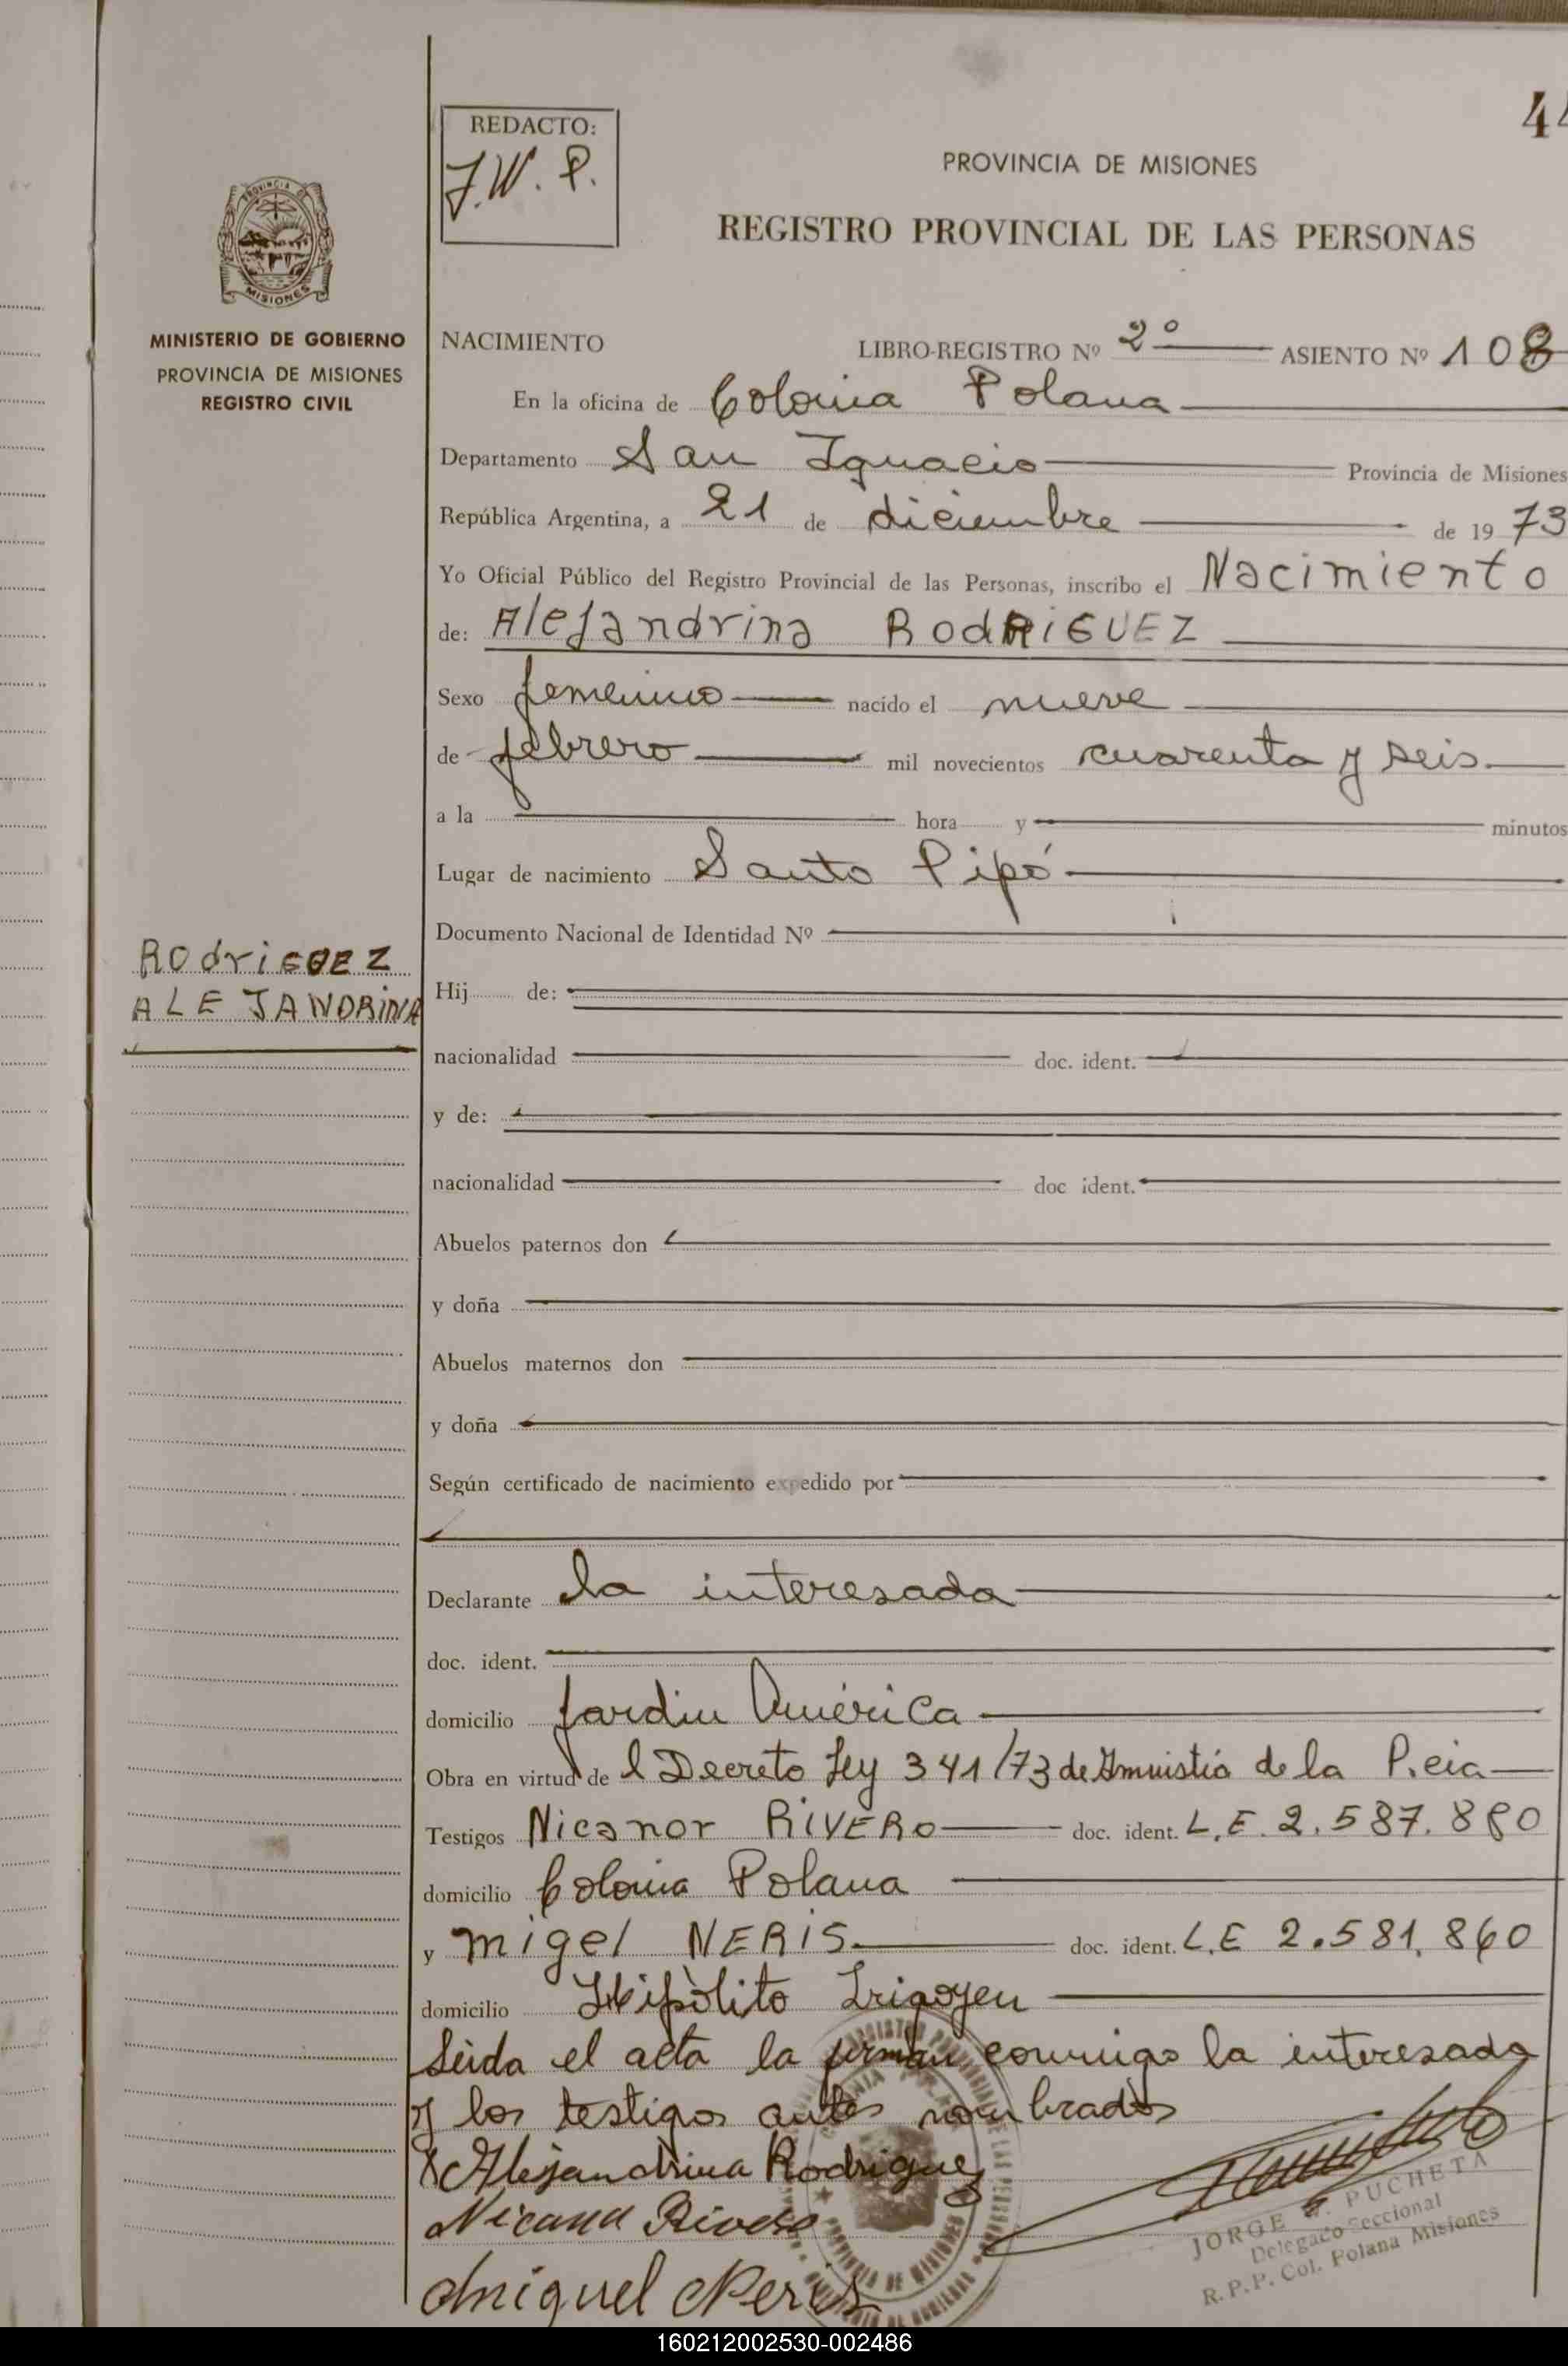 44
REDACTO:
J.W.P.
PROVINCIA DE MISIONES
REGISTRO PROVINCIAL DE LAS PERSONAS
PROVINCIA DE
MISIONES
MINISTERIO DE GOBIERNO
PROVINCIA DE MISIONES
REGISTRO CIVIL
NACIMIENTO LIBRO-REGISTRO Nº 2º ASIENTO Nº 108
En la oficina de Colonia Polana
Departamento San Ignacio Provincia de Misiones
República Argentina, a 21 de diciembre de 1973
Yo Oficial Público del Registro Provincial de las Personas, inscribo el Nacimiento
de: Alejandrina RodRiGUEZ
Sexo femenino nacido el nueve
de febrero mil novecientos cuarenta y seis
a la hora y minutos
Lugar de nacimiento Santo Pipó
Documento Nacional de Identidad Nº
RodriGUEZ
ALEJANDRiNA
Hij de:
nacionalidad doc. ident.
y de:
nacionalidad doc ident.
Abuelos paternos don
y doña
Abuelos maternos don
y doña
Según certificado de nacimiento expedido por
Declarante la interesada
doc. ident.
domicilio Jardin América
Obra en virtud de l Decreto Ley 341/73 de Amnistia de la P.cia
Testigos Nicanor RiVERo doc. ident. L.E. 2.587.880
domicilio Colonia Polana
y migel NERiS doc. ident. L.E 2.581.860
domicilio Hipòlito Irigoyen
Leida el acta la firman conmigo la interesada
y los testigos antes nombrados
x Alejandrina Rodriguez
Nicanor Rivero
Miguel Neris
JORGE W. PUCHETA
Delegado Seccional
R.P.P. Col. Polana Misiones
160212002530-002486